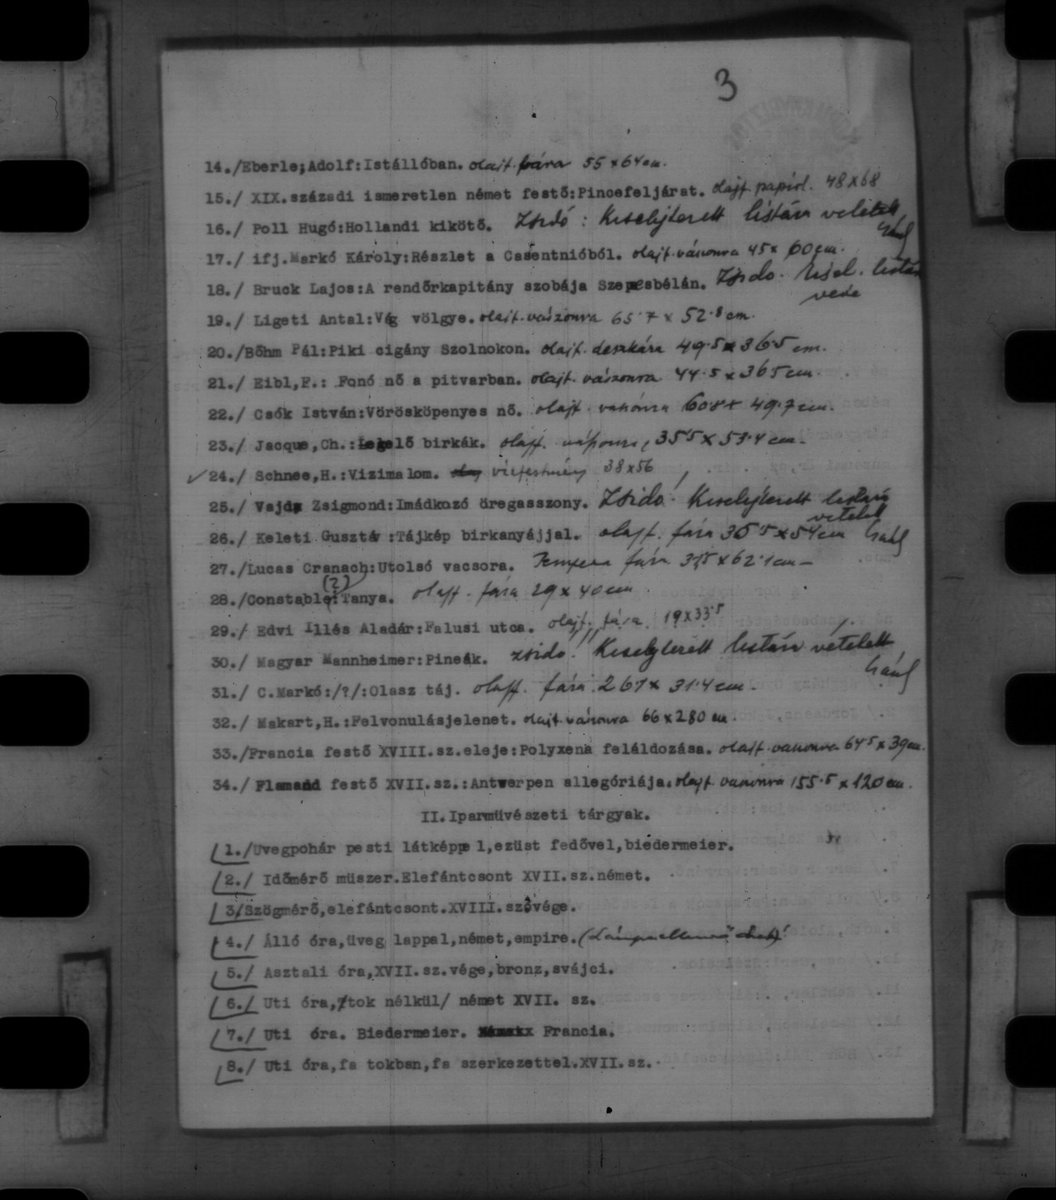 3
14./Eberle;Adolf:Istállóban. olajf. fára 55 x 64 cm.
15./ XIX.századi ismeretlen német festő:Pincefeljárat. olajf. papirl. 48 x 68
16./ Poll Hugó:Hollandi kikötő. Zsidó: Kiselejterett listára vétetett
17./ ifj.Markó Károly:Részlet a Casentnióból. olajf. vászonra 45 x 60 cm.
18./ Bruck Lajos:A rendőrkapitány szobája Szepesbélán. Zsido. kisel. listára
véve
19./ Ligeti Antal:Vág völgye. olajf. vászonra 65·7 x 52·8 cm.
20./Bőhm Pál:Piki cigány Szolnokon. olajf. deszkára 49·5 x 36·5 cm.
21./ Eibl,F.: Fonó nő a pitvarban. olajf. vászonra 44·5 x 36 5 cm
22./ Csók István:Vörösköpenyes nő. olajf. vászonra 60 8 x 49·7 cm.
23./ Jacque,Ch.:Legelő birkák. olajf. vászonra, 35·5 x 53·4 cm.
24./ Schnee,H.:Vizimalom. vizfestmény 38 x 56
25./ Vajda Zsigmond:Imádkozó öregasszony. Zsido! Kiselejterett listára
vétetett
26./ Keleti Gusztáv :Tájkép birkanyájjal. olajf. fára 36·5 x 54 cm
27./Lucas Cranach:Utolsó vacsora. Tempera fára 37,5 x 62·1 cm
(?)
28./Constable:Tanya. olajf. fára 29 x 40 cm
29./ Edvi Illés Aladár:Falusi utca. olajf. fára 19 x 33·5
30./ Magyar Mannheimer:Pineák. zsidó! Kiselejterett listára vétetett
31./ C.Markó:/?/:Olasz táj. olajf. fára 26 7 x 31·4 cm.
32./ Makart,H.:Felvonulásjelenet. olajf. vászonra 66 x 280 cm.
33./Francia festő XVIII.sz.eleje:Polyxena feláldozása. olajf. vászonra 64 5 x 39 cm.
34./ Flamand festő XVII.sz.:Antwerpen allegóriája. olajf. vászonra 155·5 x 120 cm.
II.Iparművészeti tárgyak.
1./Uvegpohár pesti látképpel,ezüst fedővel,biedermeier.
2./ Időmérő müszer.Elefántcsont XVII.sz.német.
3/Szögmérő,elefántcsont.XVIII.sz.vége.
4./ Álló óra,üveg lappal,német,empire.
5./ Asztali óra,XVII.sz.vége,bronz,svájci.
6./ Uti óra,/tok nélkül/ német XVII. sz.
7./ Uti óra. Biedermeier. Francia.
8./ Uti óra,fa tokban,fa szerkezettel.XVII.sz.